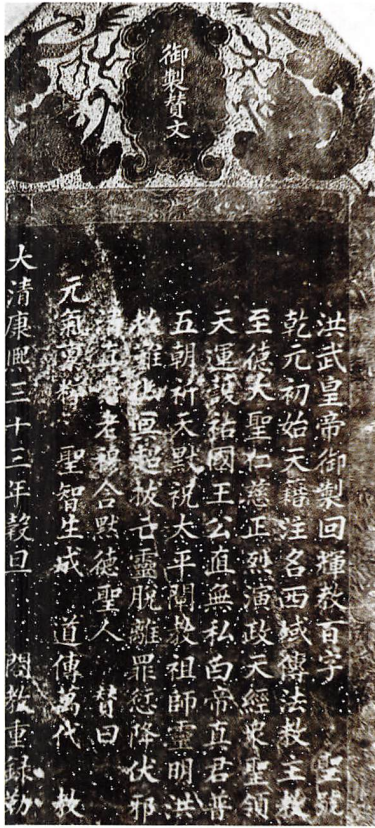 御製賛文
洪武皇帝御製回輝教百字 聖號
乾元初始天籍注名西域傳法教主教
至德大聖仁慈正烈演政天經衆聖領
天運護祐國王公直無私白帝真君普
五朝祈天默祝太平開教祖師靈明洪
救難幽冥超拔亡靈脫離罪愆降伏邪
清真老穆合默德聖人 替曰
元氣 聖智生成 道傳萬代 教
大清康熙三十三年穀旦 閤教重録勒